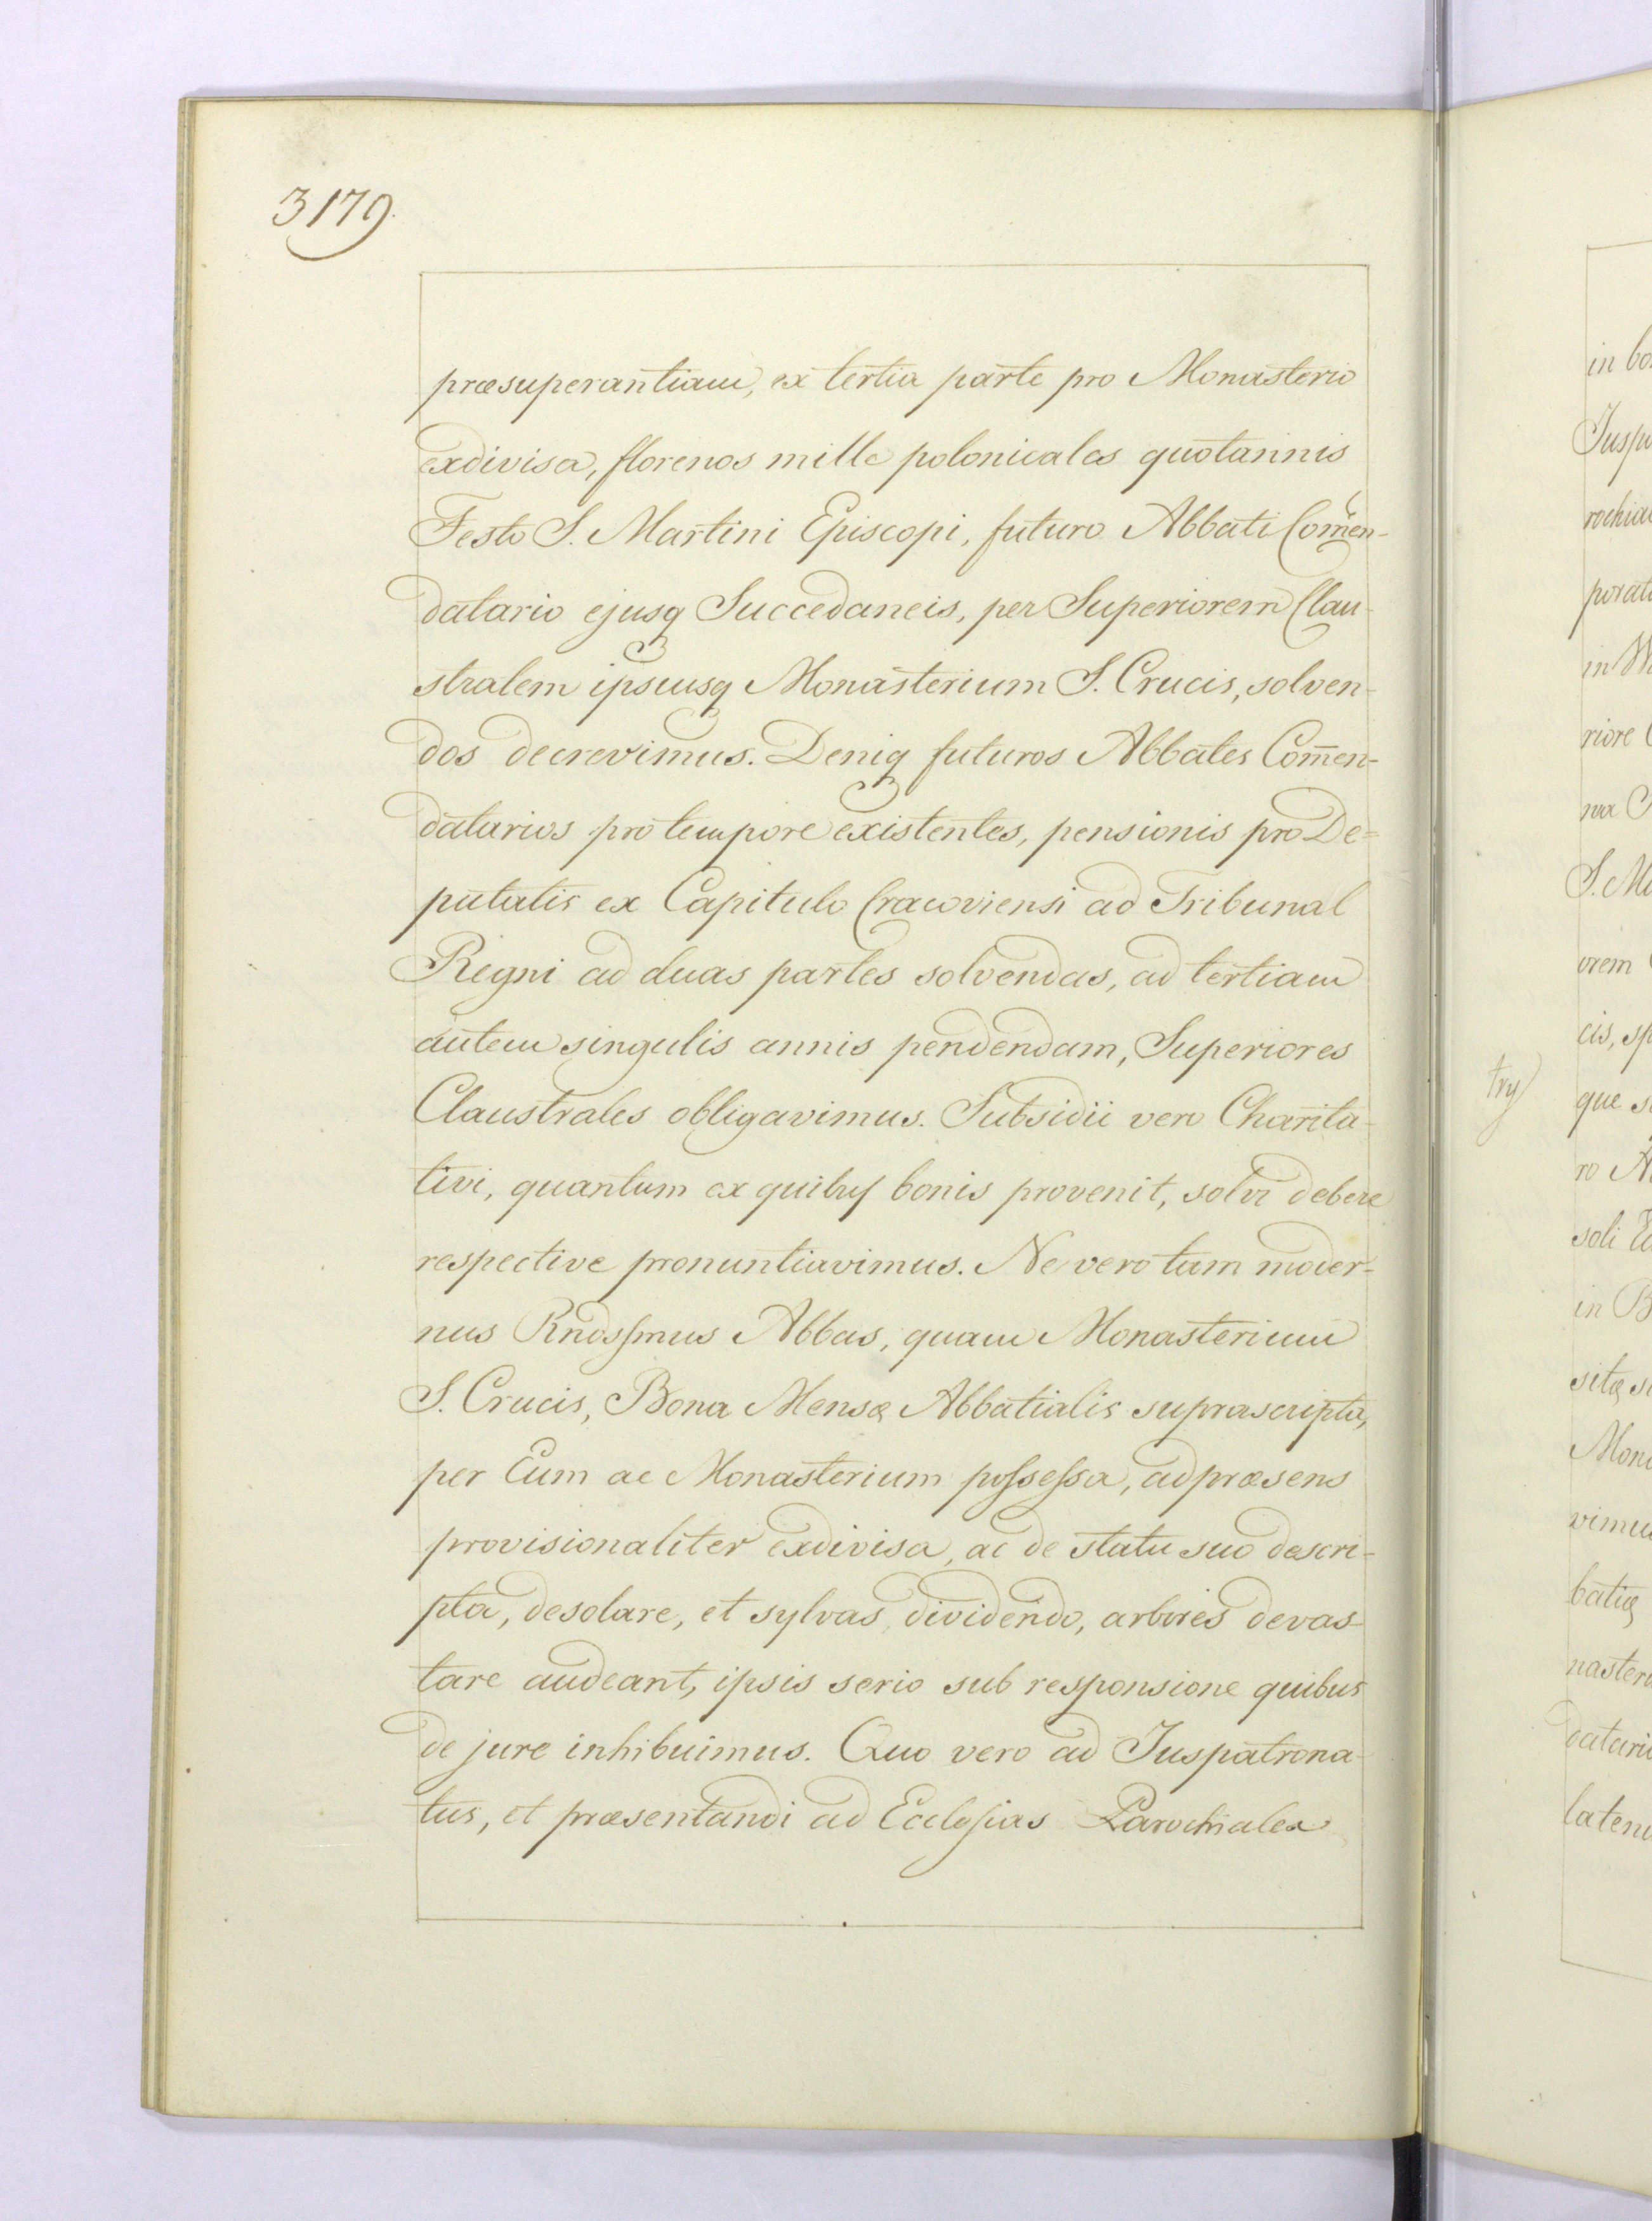 3179.
præsuperantiam, ex tertia parte pro Monasterio
exdivisa, florenos mille polonicales quotannis
Festo S. Martini Episcopi, futuro Abbati Com̃en-
datario ejusq Succedaneis, per Superiorem Clau-
stralem ipsiusq Monasterium S. Crucis, solven-
dos decrevimus. Deniq futuros Abbates Com̃en-
datarios pro tempore existentes, pensionis pro De=
putatis ex Capitulo Cracoviensi ad Tribunal
Regni ad duas partes solvendas, ad tertiam
autem singulis annis pendendam, Superiores
Claustrales obligavimus. Subsidii vero Charita-
tivi, quantum ex quibuſ bonis provenit, solvi debere
respective pronuntiavimus. Ne vero tam moder=
nus Rndsſmus Abbas, quam Monasterium
S. Crucis, Bona Mensę Abbatialis suprascripta,
per Eum ac Monasterium poſseſsa, ad præsens
provisionaliter exdivisa, ac de statu suo descri=
pta, desolare, et sylvas dividendo, arbores devas-
tare audeant, ipsis serio sub responsione quibus
de jure inhibuimus. Quo vero ad Juspatrona-
tus, et præsentandi ad Eccleſias Parochiales
in bo
Juspa
rochia
porat
in W
riore
na C
S. Ma
orem
cis, sp
try
que s
ro A
soli
in B
sitę s
Mona
vimu
batię
naster
datari
laten